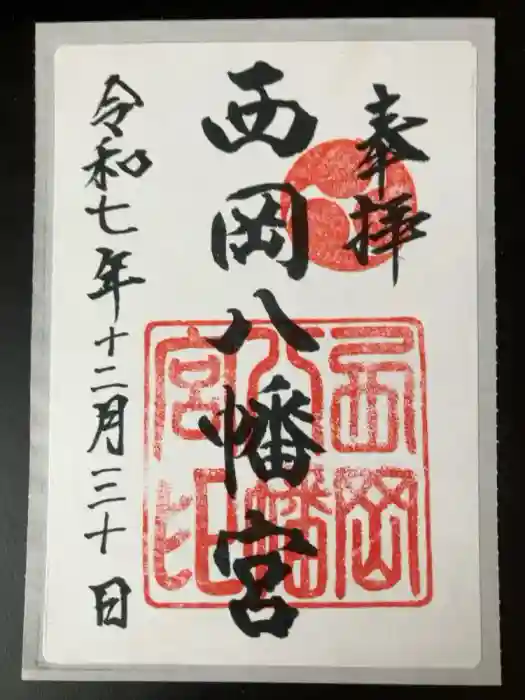 奉拝
西岡八幡宮
西岡
八幡
宮比
令和七年十二月三十日